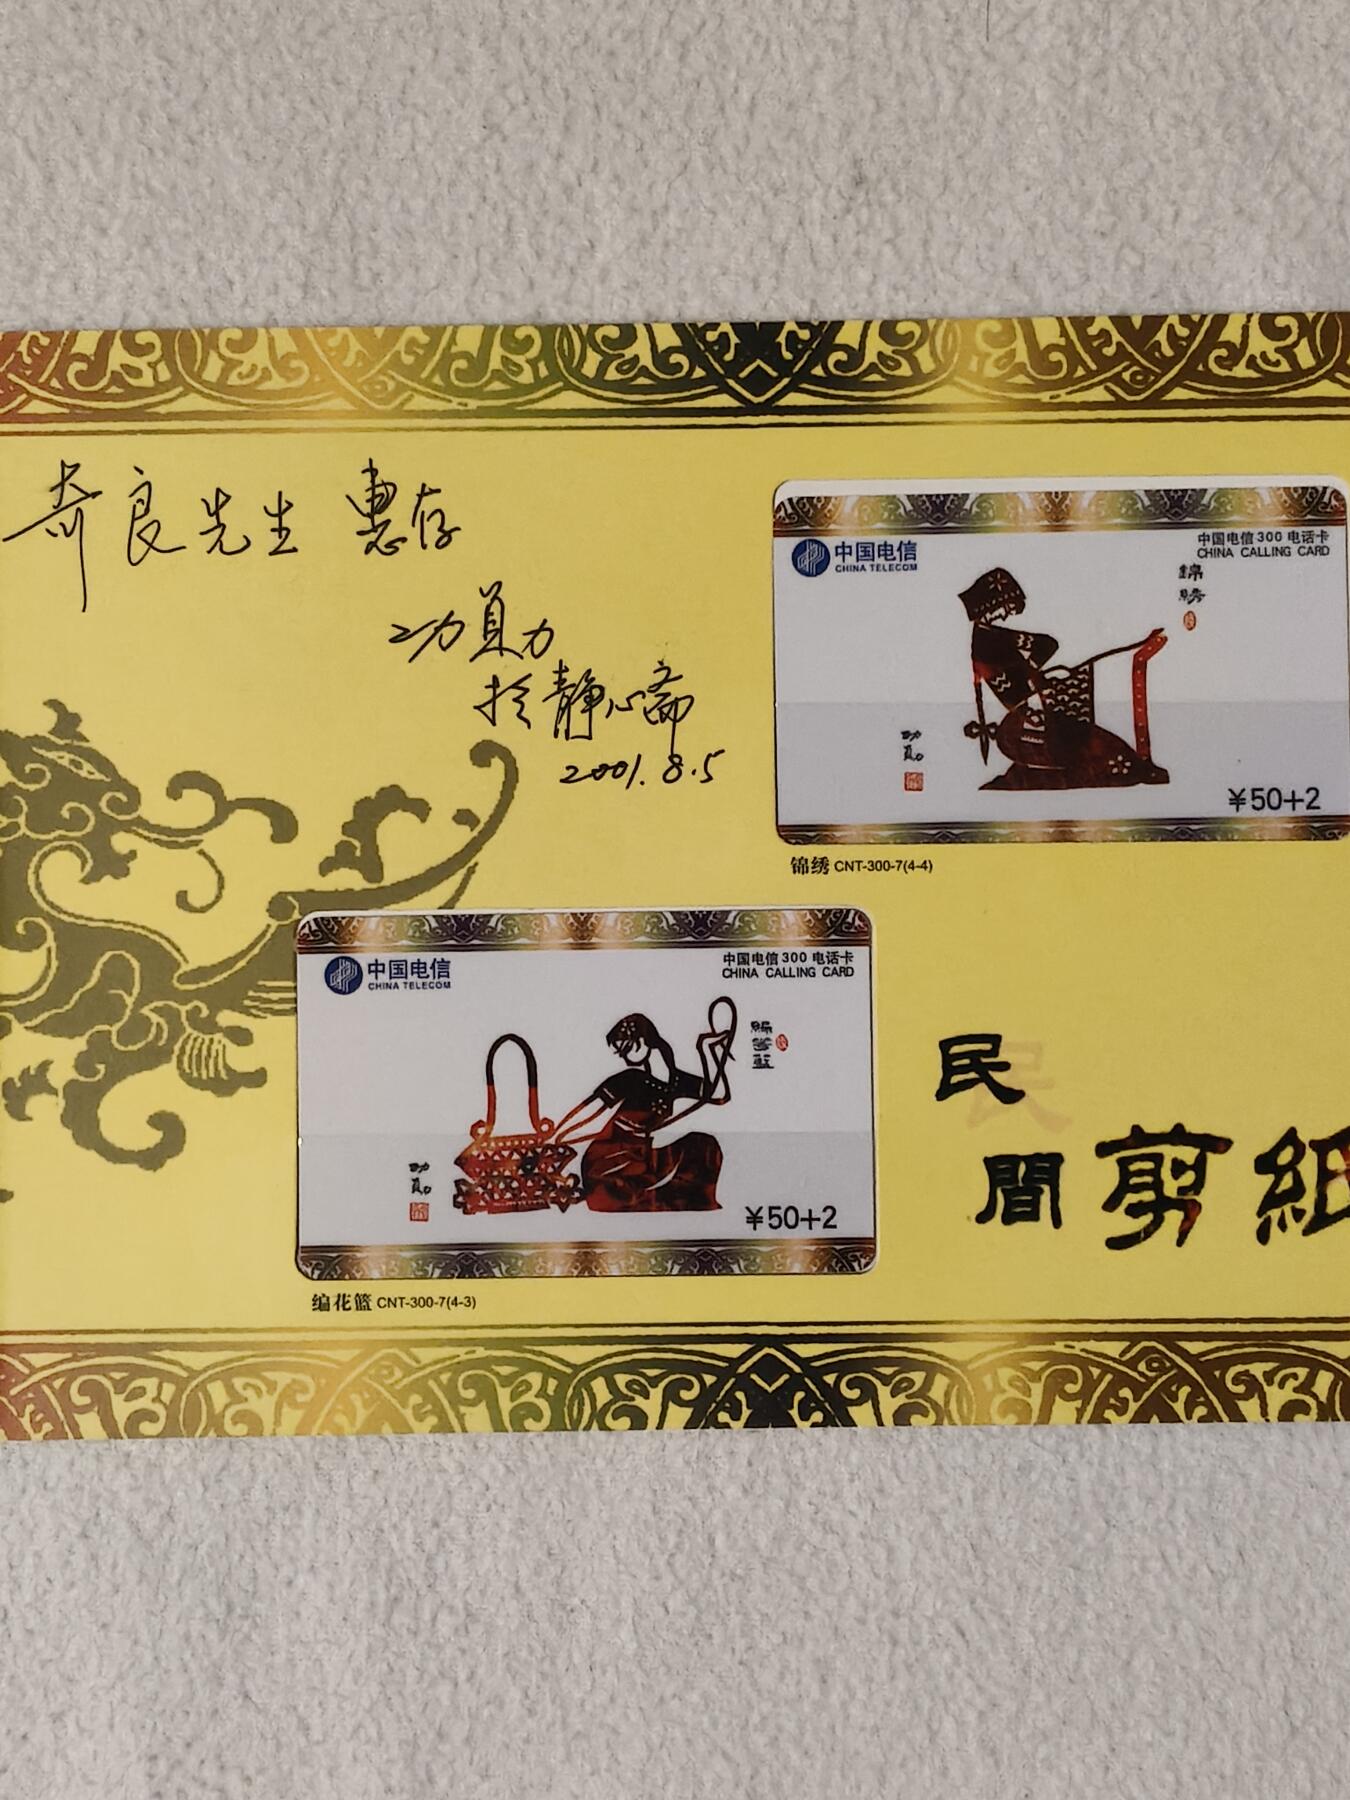 奇良先生 惠存
功勛
于静心斋
2001.8.5
中国电信
CHINA TELECOM
中国电信300电话卡
CHINA CALLING CARD
錦
繡
功
勛
¥50+2
锦绣 CNT-300-7(4-4)
中国电信
CHINA TELECOM
中国电信300电话卡
CHINA CALLING CARD
編
花
籃
功
勛
¥50+2
编花篮 CNT-300-7(4-3)
民
間 剪 紙